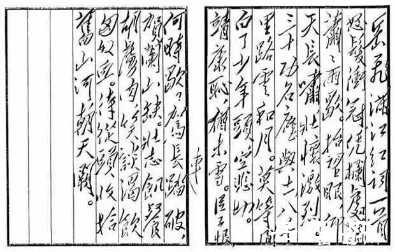 岳飛滿江红词一首
怒髮衝冠凭欄處
瀟瀟雨歇。抬望眼仰
天長嘯壯懷激烈
三十功名塵與土八千
里路雲和月。莫等閑
白了少年頭空悲切。
靖康恥，猶未雪。臣子恨
何時歇，駕長車踏破
賀蘭山缺。壯志飢餐
胡虜肉笑談渴飲
匈奴血。待從頭收拾
舊山河朝天闕。